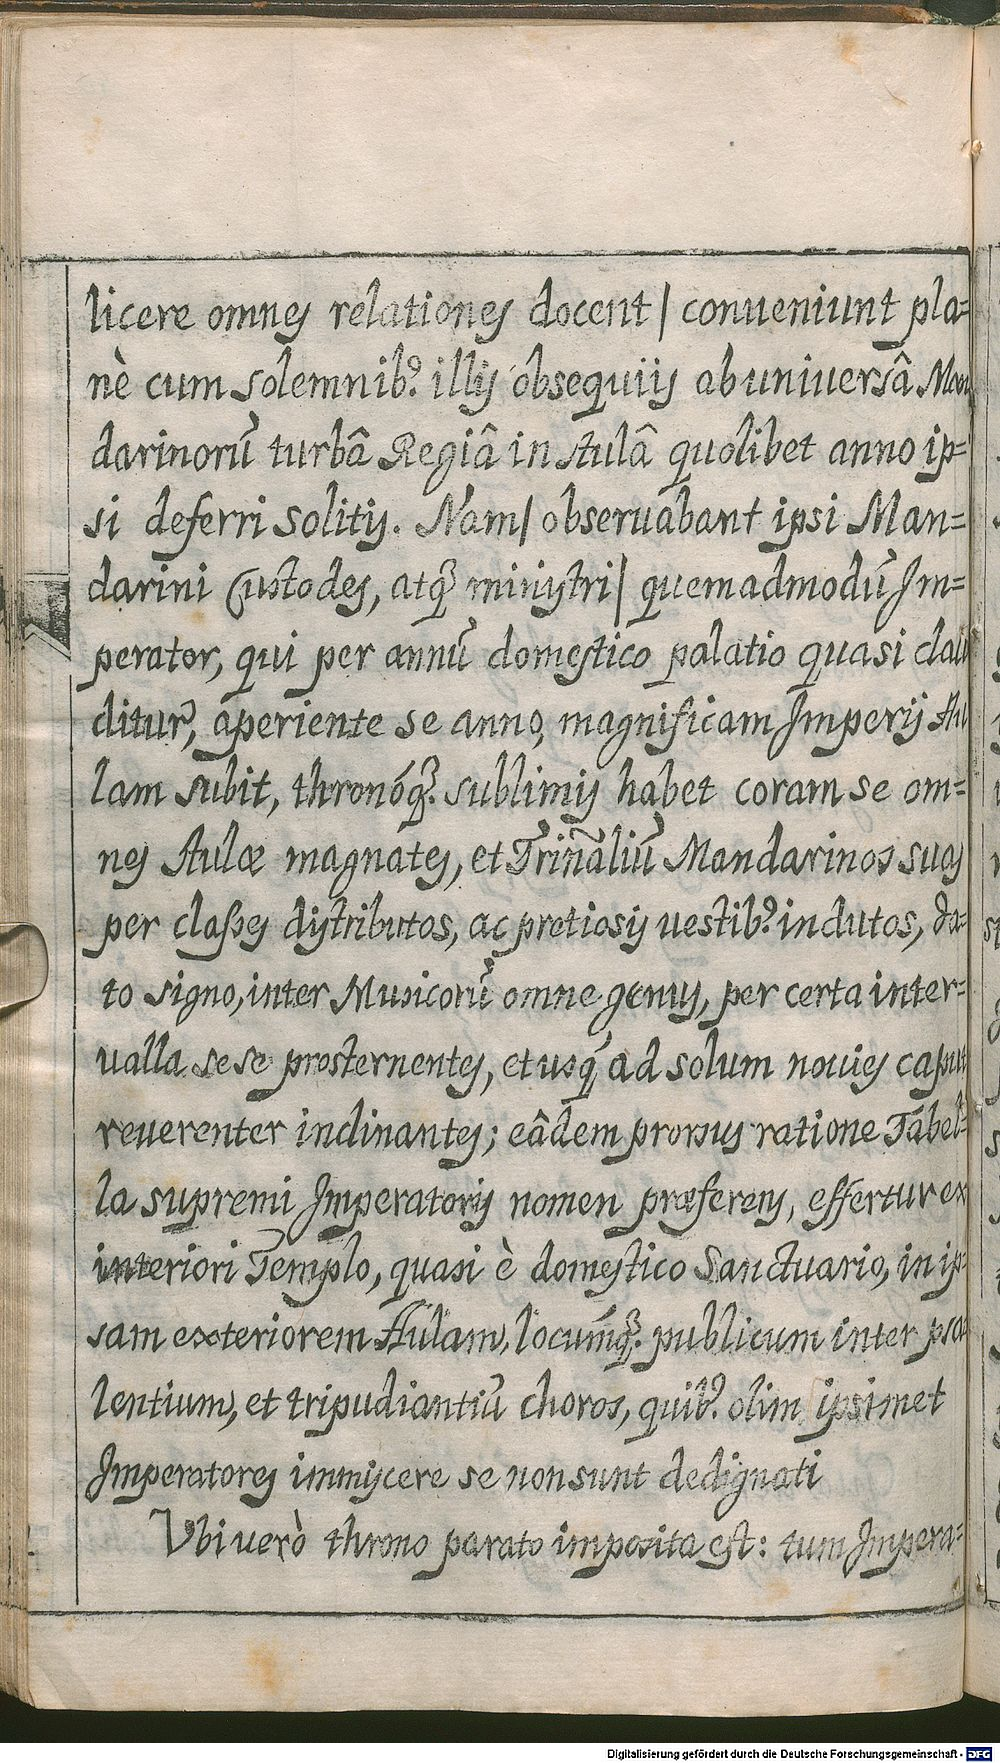 licere omnes relationes docent / conueniunt pla=
nè cum solemnib9. illis obsequiis ab uniuersâ Man
darinorū turbâ Regiâ in Aulâ quolibet anno ip=
si deferri solitis. Nam / obseruabant ipsi Man=
darini Custodes, atq3 ministri / quemadmodū Im=
perator, qui per annū domestico palatio quasi clau
ditur, aperiente se anno, magnificam Imperij Au
lam subit, thronóq3. sublimis habet coram se om=
nes Aulæ magnates, et Tribūaliū Mandarinos suas
per classes distributos, ac pretiosis uestib9. indutos, da=
to signo, inter Musicorū omne genus, per certa inter=
ualla sese prosternentes, et usq3 ad solum nouies caput
reuerenter inclinantes; eâdem prorsus ratione Tabel=
la supremi Imperatoris nomen præferens, effertur ex
interiori Templo, quasi è domestico Sanctuario, in ip=
sam exteriorem Aulam, locumq3. publicum inter psal
lentium, et tripudiantiū choros, quib9. olim ipsimet
Imperatores immiscere se non sunt dedignati
Vbi verò throno parato imposita est: tum Impera=
Digitalisierung gefördert durch die Deutsche Forschungsgemeinschaft - DFG